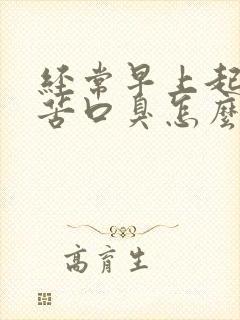 經常早上起
苦口臭怎麼
高育生